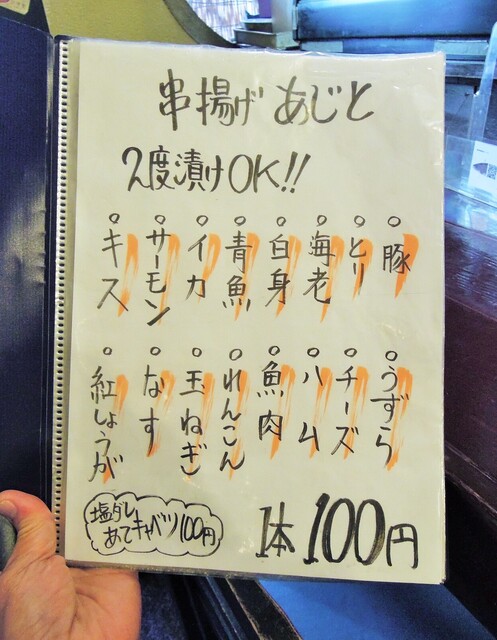 串揚げ あじと
2度漬けOK!!
○豚
○とり
○海老
○白身
○青魚
○イカ
○サーモン
○キス
○うずら
○チーズ
○ハム
○魚肉
○れんこん
○玉ねぎ
○なす
○紅しょうが
塩ダレ
あてキャベツ100円
1本100円